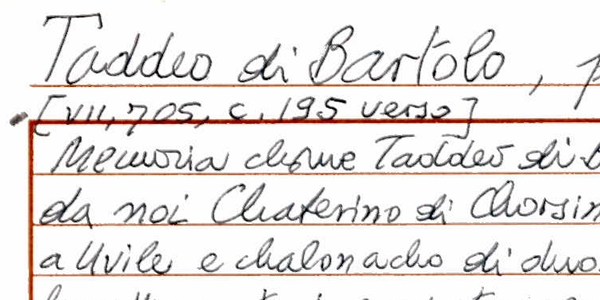 Taddeo di Bartolo,
[VII, 705, c. 195 verso]
Memoria chome Taddeo di
da noi Chaterino di Chorsin
a Uvile e chalonacho di duo